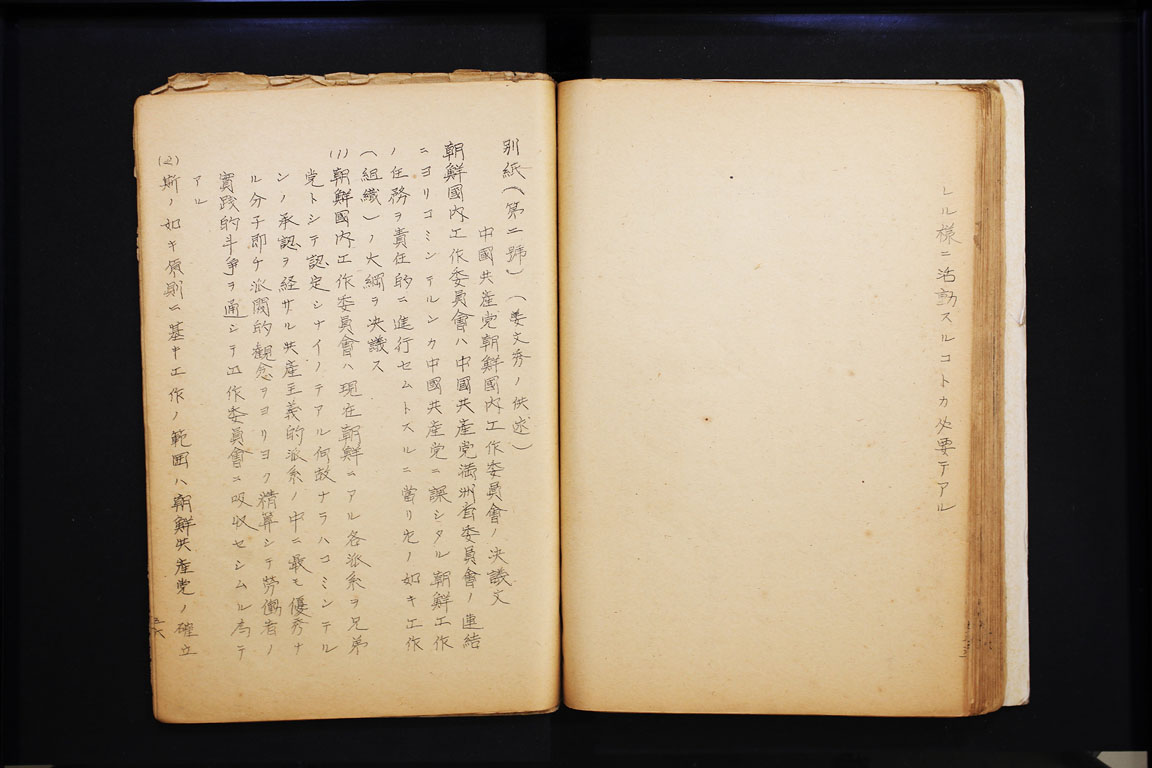 レル様ニ活動スルコトカ必要テアル
別紙(第二號)(姜文秀ノ供述)
中國共産党朝鮮國內工作委員會ノ決議文
朝鮮國內工作委員會ハ中國共産党満洲省委員會ノ連結
ニヨリコミンテルンカ中國共産党ニ課シタル朝鮮工作
ノ任務ヲ責任的ニ進行セムトスルニ當リ先ノ如キ工作
(組織)ノ大綱ヲ決議ス
(1)朝鮮國內工作委員會ハ現在朝鮮ニアル各派系ヲ兄弟
党トシテ認定シナイノテアル何故ナラハコミンテル
ンノ承認ヲ経サル共産主義的派系ノ中ニ最モ優秀ナ
ル分子即チ派閥的觀念ヲヨリヨク精算シテ労働者ノ
實践的斗争ヲ通シテ工作委員會ニ吸収セシムル為テ
アル
(2)斯ノ如キ原則ニ基キ工作ノ範囲ハ朝鮮共産党ノ確立
五六